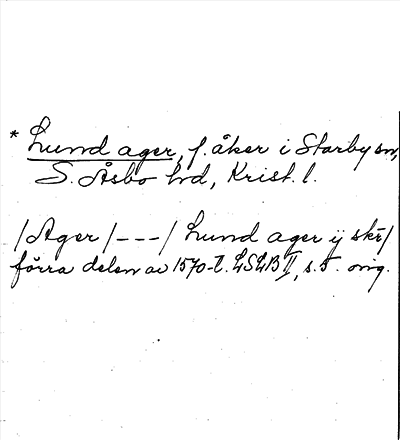 * Lund ager, f. åker i Starby sn,
S. Åsbo hd, Krist. l.
/Ager/---/ Lund ager ij skr/
förra delen av 1570-t. LSLB II, s. 5. orig.